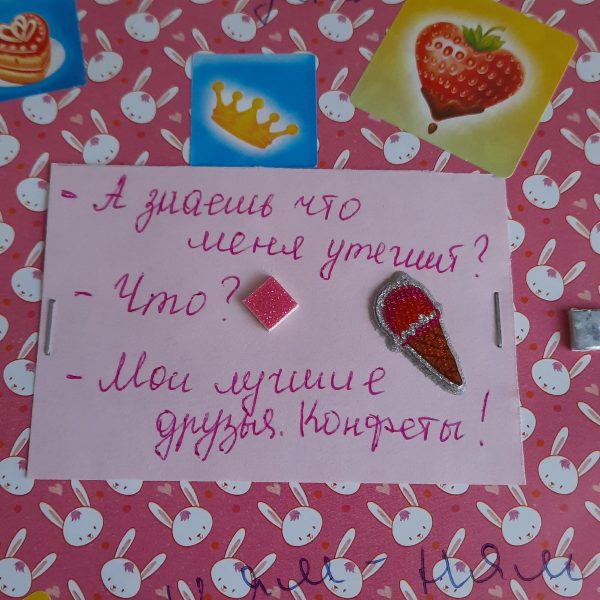 - А знаешь что
меня утешит?
- Что?
- Мои лучшие
друзья. Конфеты!
ням - ням